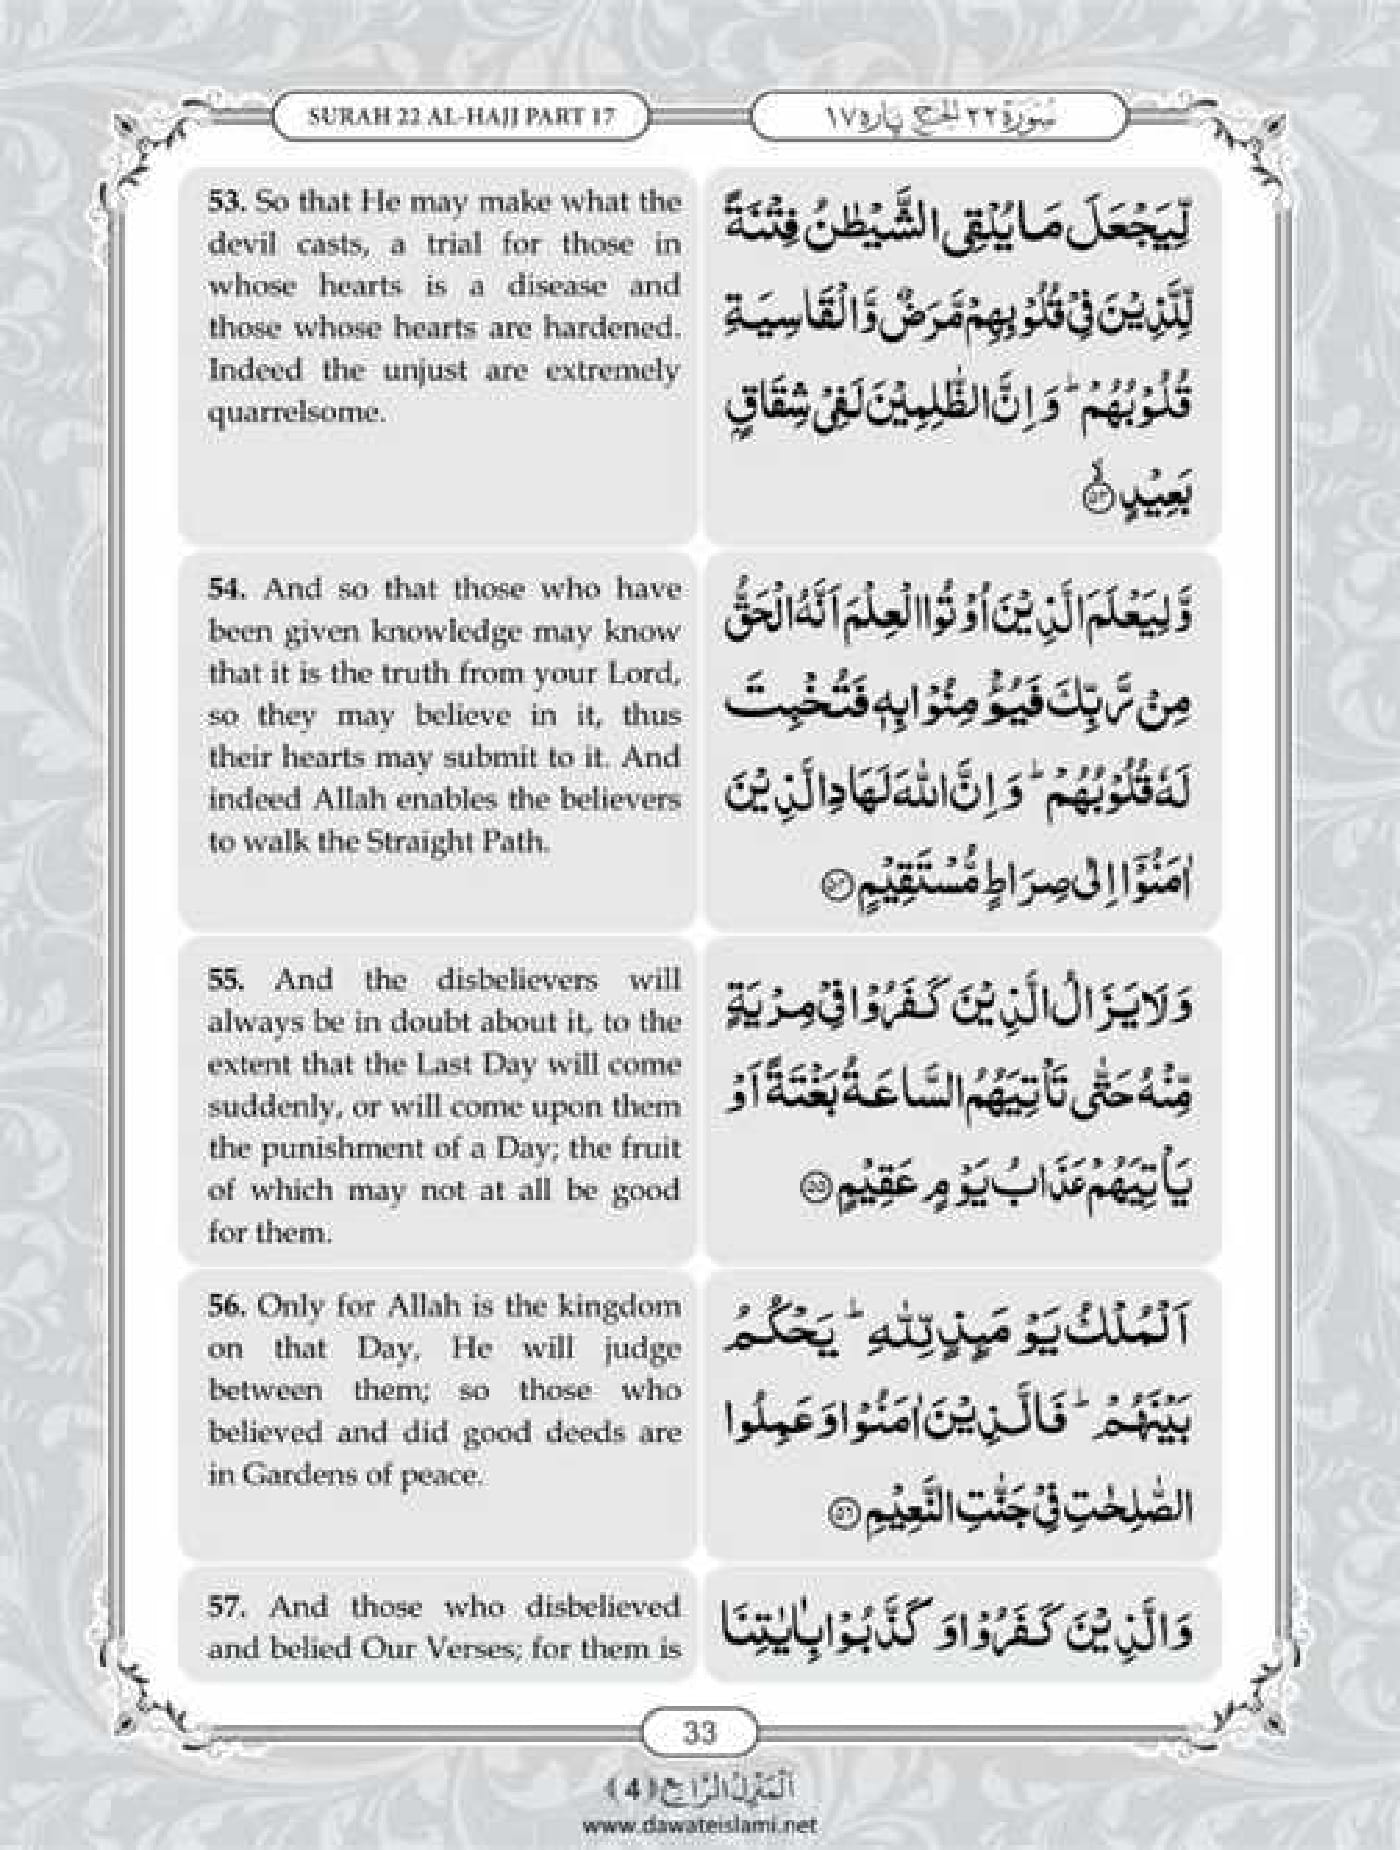 SURAH 22 AL-HAJJ PART 17
سُوْرَة ٢٢ الحج پاره ١٧
53. So that He may make what the
devil casts, a trial for those in
whose hearts is a disease and
those whose hearts are hardened.
Indeed the unjust are extremely
quarrelsome.
لِّيَجْعَلَ مَا يُلْقِى الشَّيْطٰنُ فِتْنَةً
لِّلَّذِيْنَ فِيْ قُلُوْبِهِمْ مَّرَضٌ وَّالْقَاسِيَةِ
قُلُوْبُهُمْ ؕ وَ اِنَّ الظّٰلِمِيْنَ لَفِيْ شِقَاقٍۭ
بَعِيْدٍ ۙ﴿۵۳﴾
54. And so that those who have
been given knowledge may know
that it is the truth from your Lord,
so they may believe in it, thus
their hearts may submit to it. And
indeed Allah enables the believers
to walk the Straight Path.
وَّ لِيَعْلَمَ الَّذِيْنَ اُوْتُوا الْعِلْمَ اَنَّهُ الْحَقُّ
مِنْ رَّبِّكَ فَيُؤْمِنُوْا بِهٖ فَتُخْبِتَ
لَهٗ قُلُوْبُهُمْ ؕ وَ اِنَّ اللّٰهَ لَهَادِ الَّذِيْنَ
اٰمَنُوْۤا اِلٰى صِرَاطٍ مُّسْتَقِيْمٍ ﴿۵۴﴾
55. And the disbelievers will
always be in doubt about it, to the
extent that the Last Day will come
suddenly, or will come upon them
the punishment of a Day; the fruit
of which may not at all be good
for them.
وَ لَا يَزَالُ الَّذِيْنَ كَفَرُوْا فِيْ مِرْيَةٍ
مِّنْهُ حَتّٰى تَاْتِيَهُمُ السَّاعَةُ بَغْتَةً اَوْ
يَاْتِيَهُمْ عَذَابُ يَوْمٍ عَقِيْمٍ ﴿۵۵﴾
56. Only for Allah is the kingdom
on that Day, He will judge
between them; so those who
believed and did good deeds are
in Gardens of peace.
اَلْمُلْكُ يَوْمَىِٕذٍ لِّلّٰهِ ؕ يَحْكُمُ
بَيْنَهُمْ ؕ فَالَّذِيْنَ اٰمَنُوْا وَ عَمِلُوا
الصّٰلِحٰتِ فِيْ جَنّٰتِ النَّعِيْمِ ﴿۵۶﴾
57. And those who disbelieved
and belied Our Verses; for them is
وَ الَّذِيْنَ كَفَرُوْا وَ كَذَّبُوْا بِاٰيٰتِنَا
33
اَلْمَنْزِلُ الرَّابِع ﴿4﴾
www.dawateislami.net